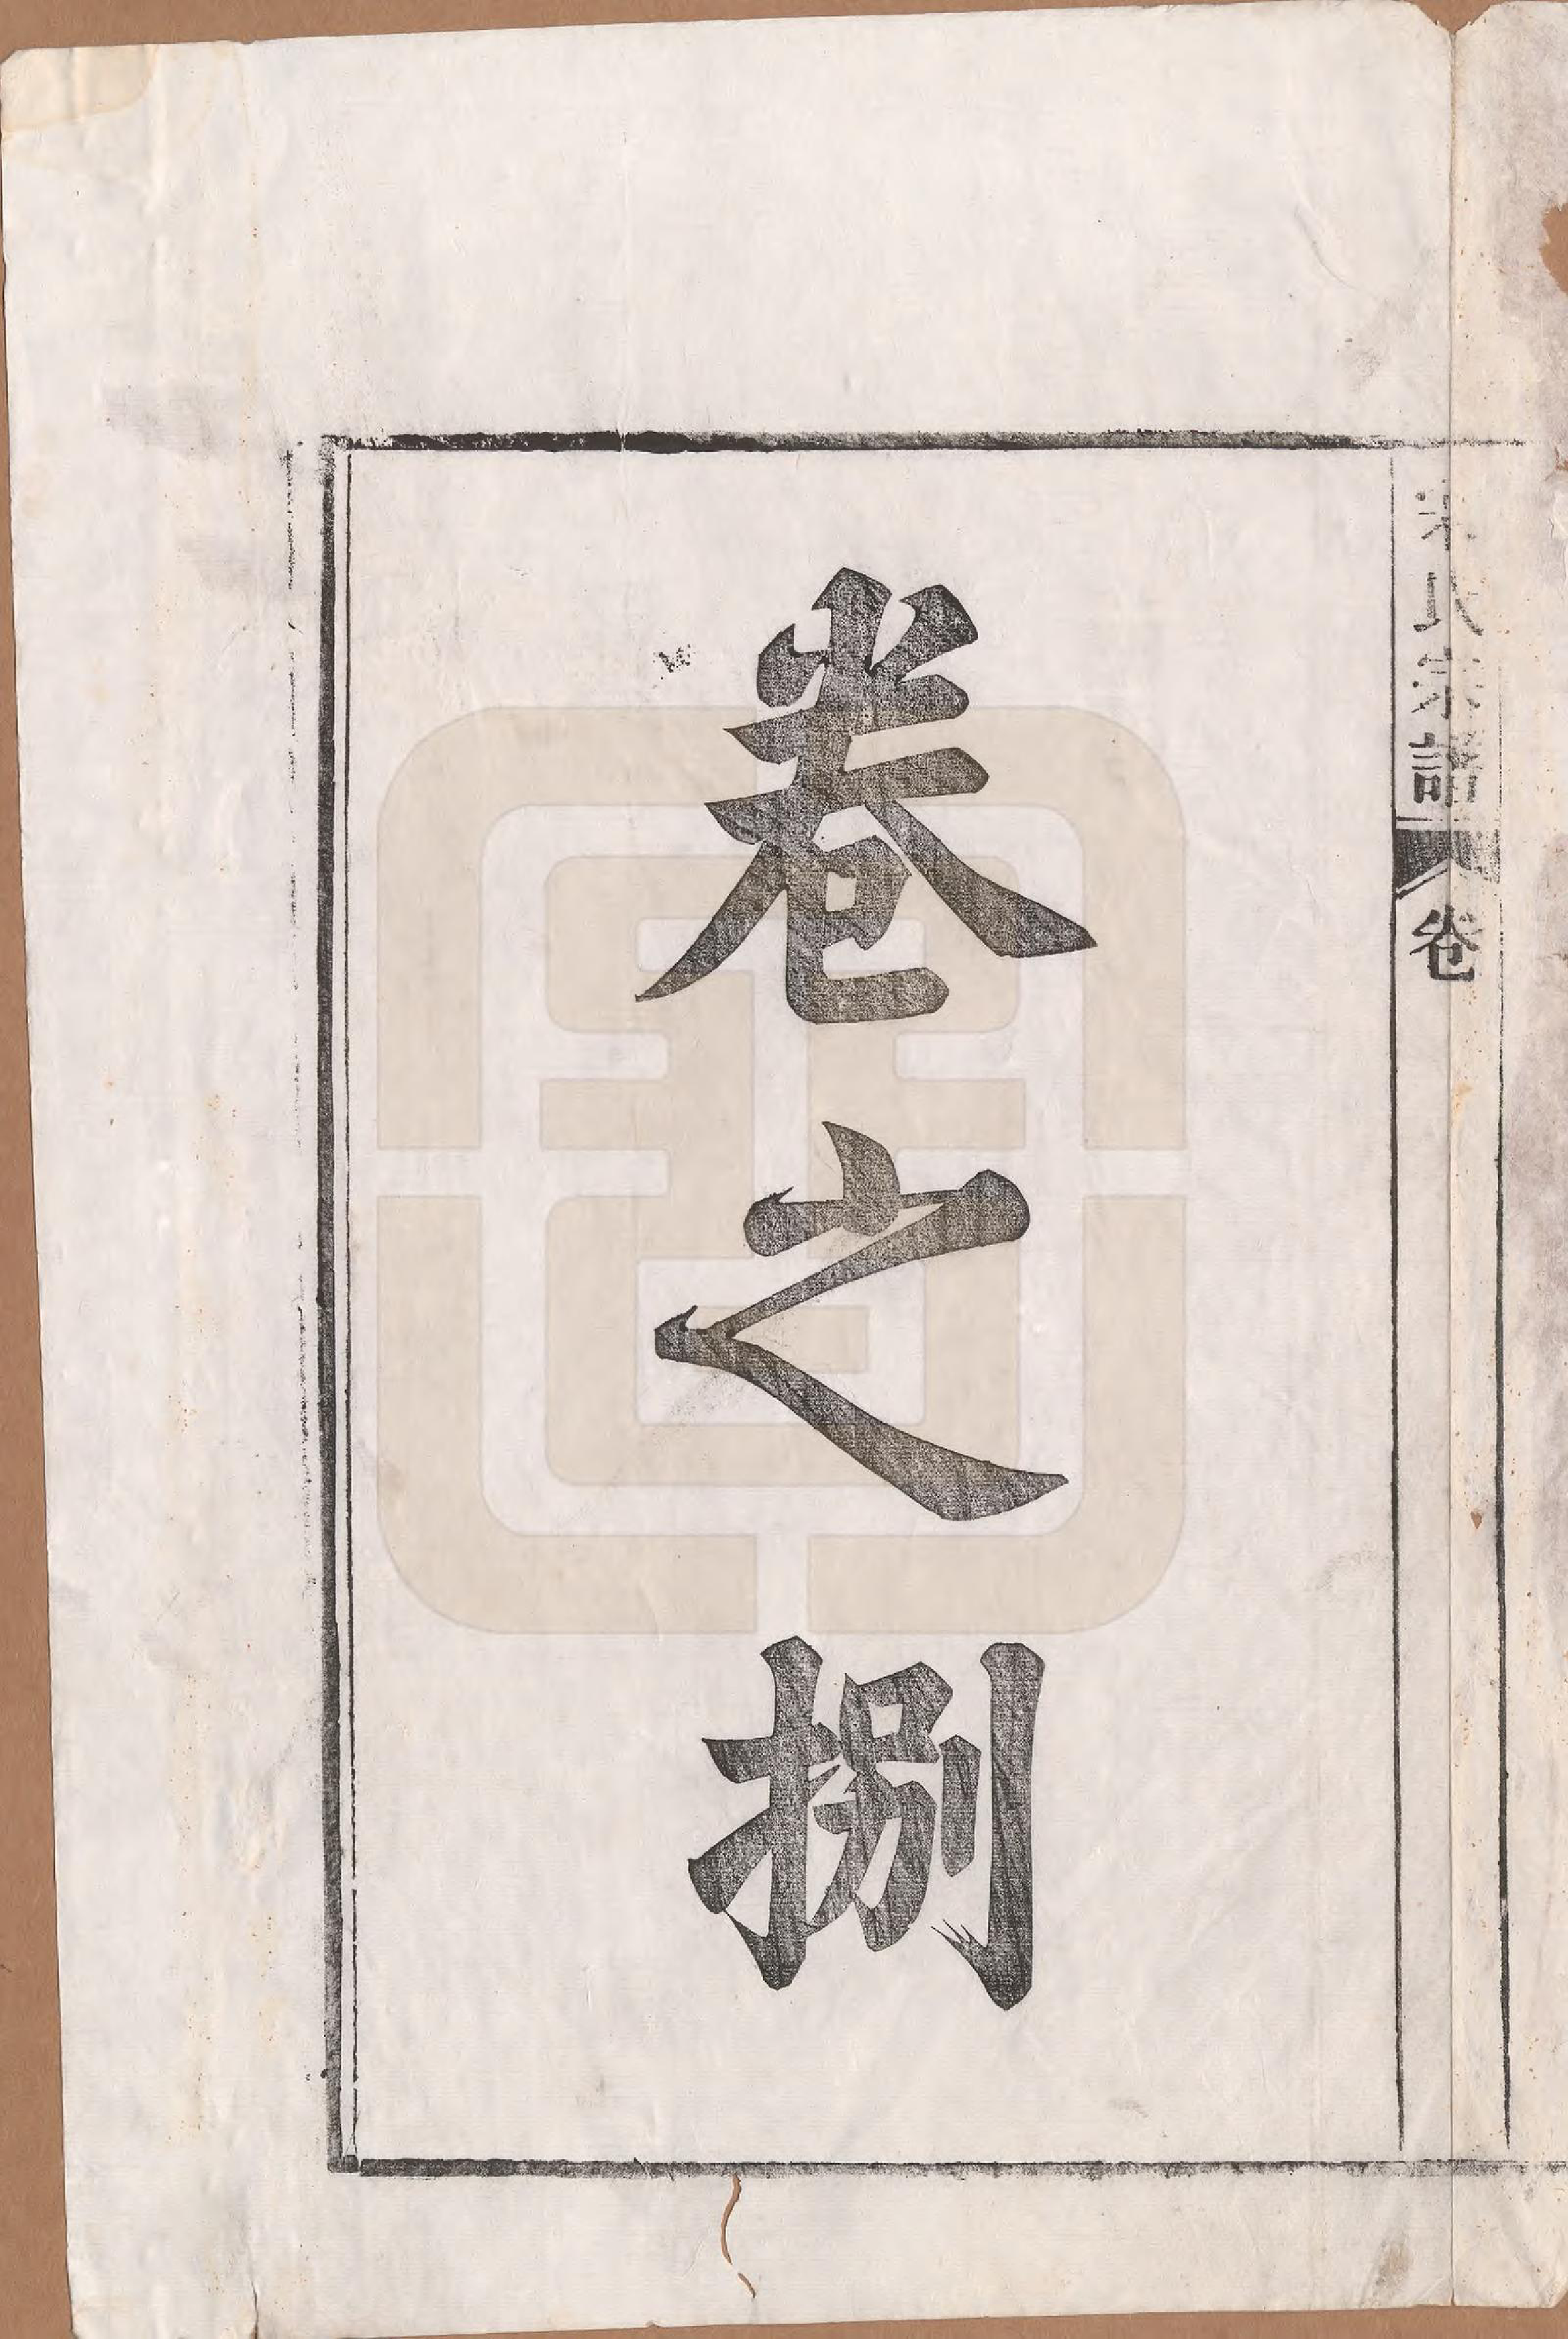 氏宗譜
卷
卷之捌